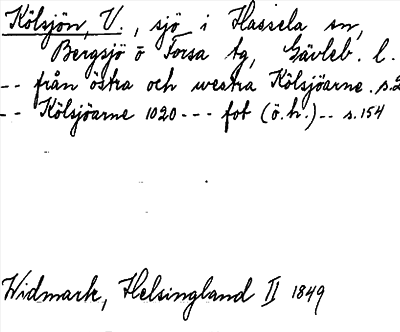 Kölsjön, V., sjö i Hassela sn,
Bergsjö o Forsa tg, Gävleb. l.
-- från östra och westra Kölsjöarne. s.2
-- Kölsjöarne 1020 --- fot (ö.h.) -- s.154
Widmark, Helsingland II 1849